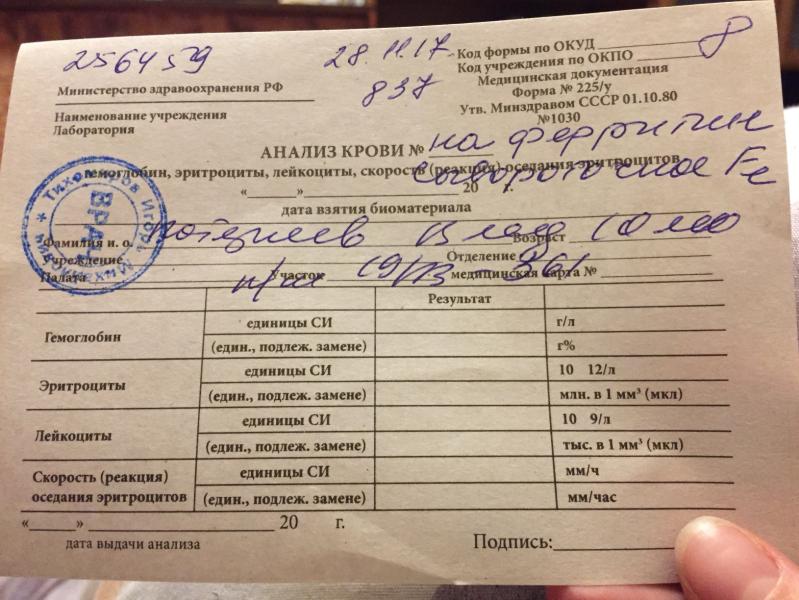 256459
28.11.17
837
8
Код формы по ОКУД
Код учреждения по ОКПО
Министерство здравоохранения РФ
Медицинская документация
Форма № 225/у
Наименование учреждения
Лаборатория
Утв. Минздравом СССР 01.10.80
№1030
АНАЛИЗ КРОВИ № на ферритин
гемоглобин, эритроциты, лейкоциты, скорость (реакция) оседания эритроцитов
сывороточное Fe
« » 20 г.
дата взятия биоматериала
ВРАЧ
Игорь
Михайлович
Фамилия и. о. Влад Возраст 10
Учреждение Отделение
Палата Участок медицинская карта №
Результат
Гемоглобин единицы СИ г/л
(един., подлеж. замене) г%
Эритроциты единицы СИ 10 12/л
(един., подлеж. замене) млн. в 1 мм³ (мкл)
Лейкоциты единицы СИ 10 9/л
(един., подлеж. замене) тыс. в 1 мм³ (мкл)
Скорость (реакция)
оседания эритроцитов
единицы СИ мм/ч
(един., подлеж. замене) мм/час
« » 20 г.
дата выдачи анализа
Подпись: